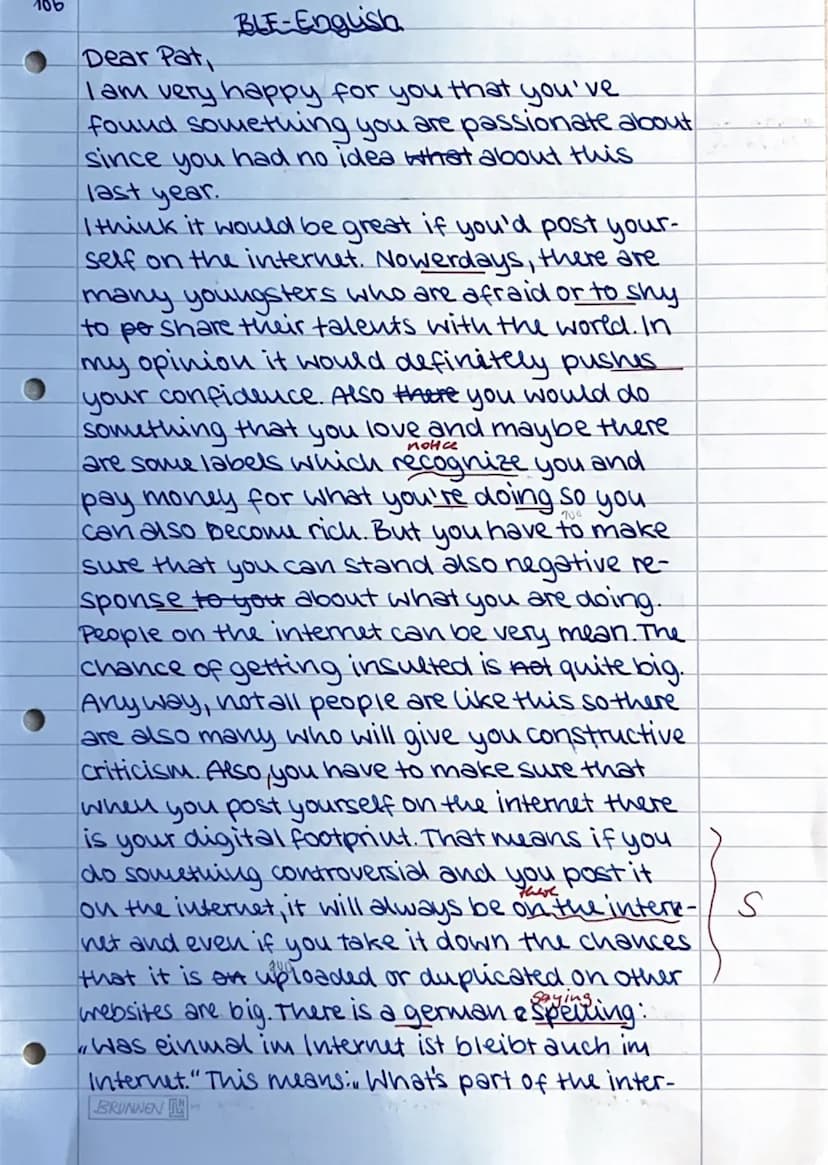 106
BLF-English
Dear Pat,
I am very happy for you that you've
found something you are passionate about
since you had no idea what about this
last year.
I think it would be great if you'd post your-
self on the internet. Nowerdays, there are
many youngsters who are afraid or to shy
to pe share their talents with the world. In
my opinion it would definitely pushes
your confidence. Also there you would do
something that you love and maybe there
notice
are some labels which recognize you and
pay money for what you're doing so you
can also become rich. But you have to make
sure that you can stand also negative re-
sponse to your about what you are doing.
People on the internet can be very mean. The
chance of getting insulted is not quite big.
Anyway, not all people are like this so there
are also many who will give you constructive
criticism. Also, you have to make sure that
when you post yourself on the internet there
is your digital footprint. That means if you
do something controversial and you post it
there
on the internet, it will always be on the inter-
S
net and even if you take it down the chances
that it is on uploaded or duplicated on other
saying
websites are big. There is a german spelling:
„Was einmal im Internet ist bleibt auch im
Internet." This means: „What's part of the inter-
BRUNNEN